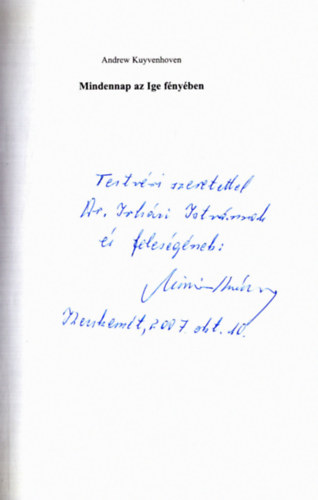 Andrew Kuyvenhoven
Mindennap az Ige fényében
Testvéri szeretettel
Dr. Istvánnak
és feleségének:
Kecskemét, 2007 okt. 10.